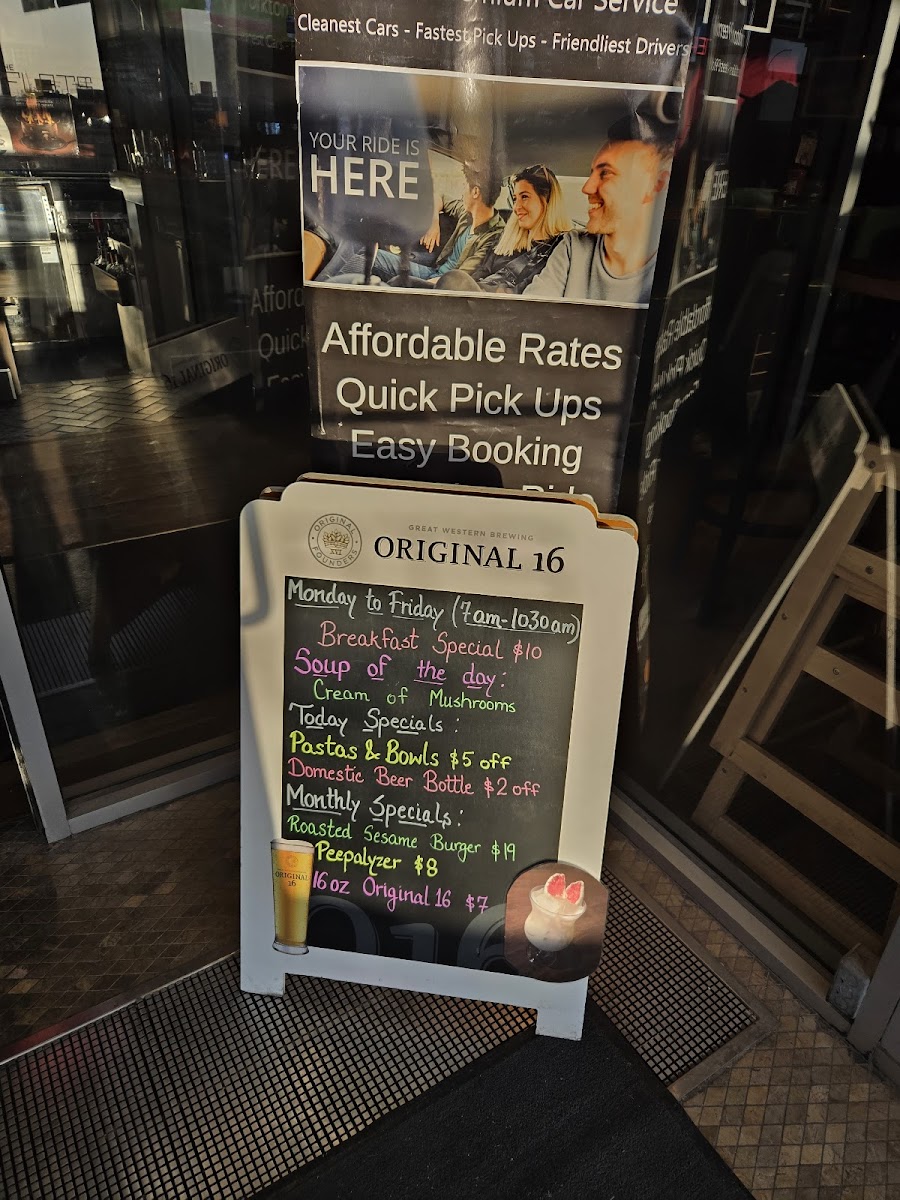 Car Service
Cleanest Cars - Fastest Pick Ups - Friendliest Drivers
YOUR RIDE IS
HERE
Affordable Rates
Quick Pick Ups
Easy Booking
ORIGINAL
FOUNDERS
XVI
GREAT WESTERN BREWING
ORIGINAL 16
Monday to Friday (7am-1030am)
Breakfast Special $10
Soup of the day:
Cream of Mushrooms
Today Specials:
Pastas & Bowls $5 off
Domestic Beer Bottle $2 off
Monthly Specials:
Roasted Sesame Burger $19
Peepalyzer $8
16 oz Original 16 $7
ORIGINAL
16